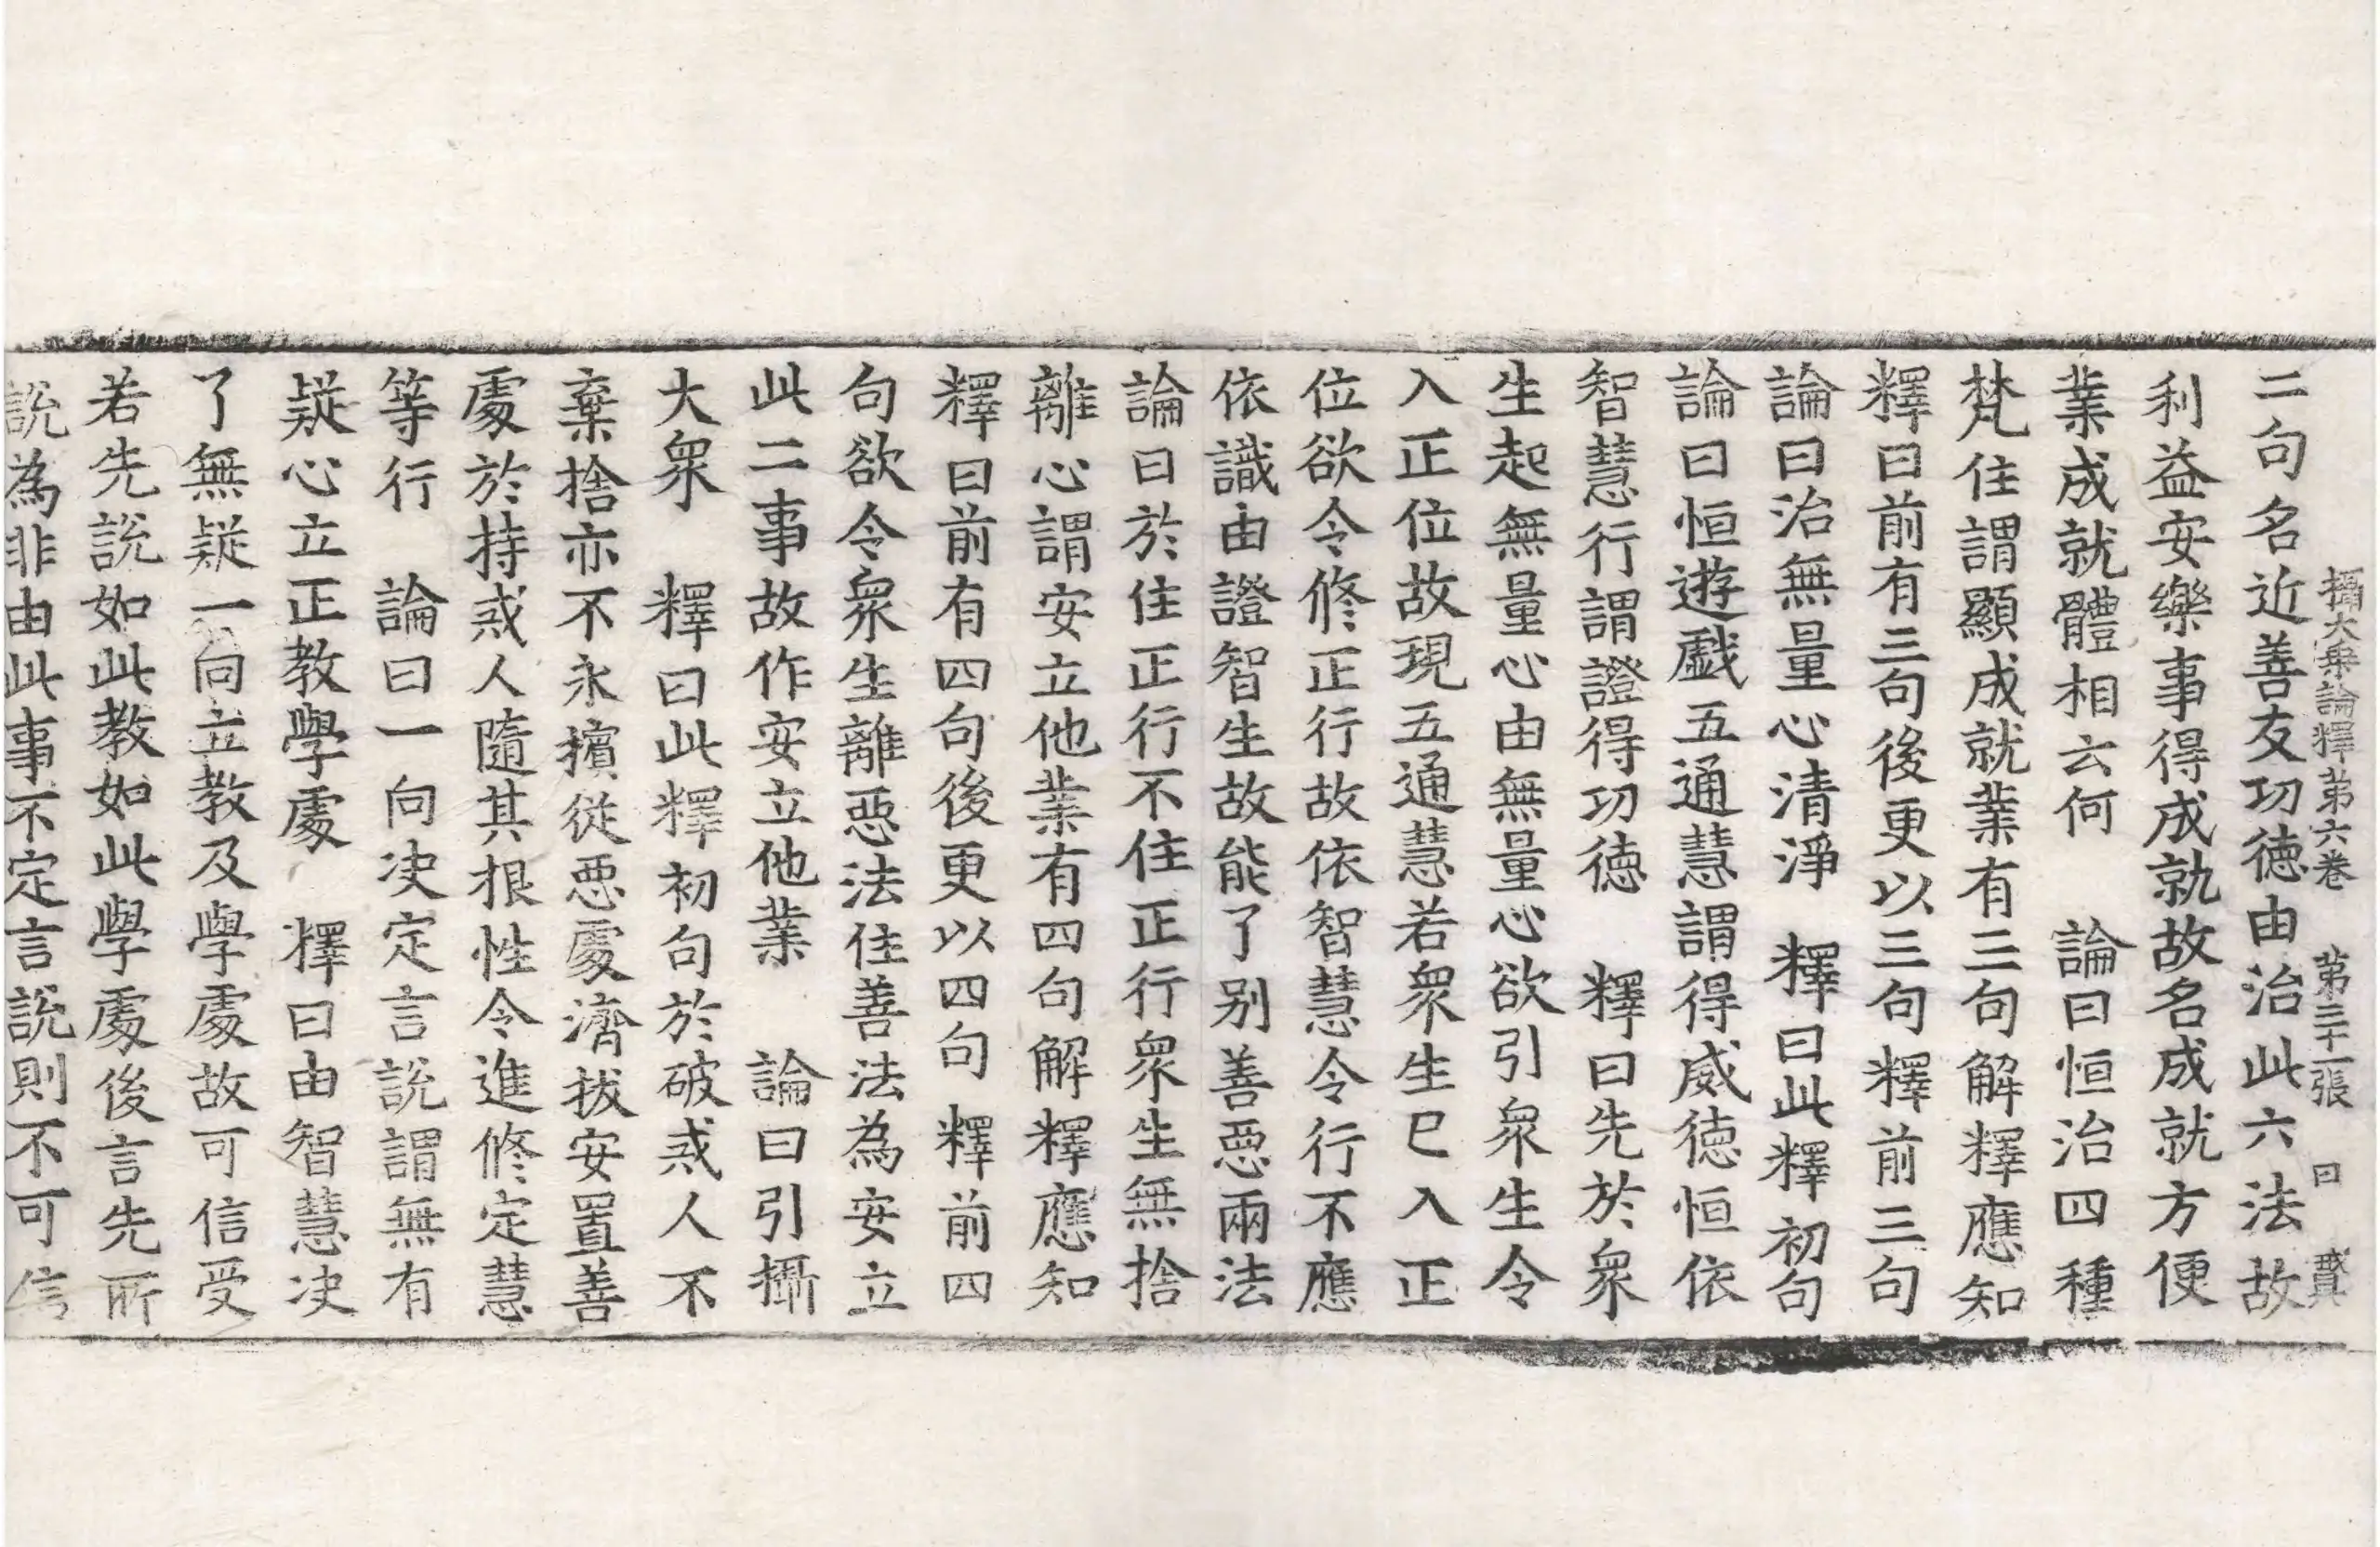 攝大乗論釋第六卷　第三十一張　曰　賢
二句名近善友功徳由治此六法故
利益安樂事得成就故名成就方便
業成就體相云何　論曰恒治四種
梵住謂顯成就業有三句解釋應知
釋曰前有三句後更以三句釋前三句
論曰治無量心清淨　釋曰此釋初句
論曰恒遊戲五通慧謂得威徳恒依
智慧行謂證得功徳　釋曰先於衆
生起無量心由無量心欲引衆生令
入正位故現五通慧若衆生已入正
位欲令修正行故依智慧令行不應
依識由證智生故能了别善惡兩法
論曰於住正行不住正行衆生無捨
離心謂安立他業有四句解釋應知
釋曰前有四句後更以四句釋前四
句欲令衆生離惡法住善法為安立
此二事故作安立他業　論曰引攝
大衆　釋曰此釋初句於破戒人不
棄捨亦不永擯從惡處濟拔安置善
處於持戒人隨其根性令進修定慧
等行　論曰一向决定言說謂無有
疑心立正教學處　釋曰由智慧决
了無疑一向立教及學處故可信受
若先說如此教如此學處後言先所
說為非由此事不定言說則不可信